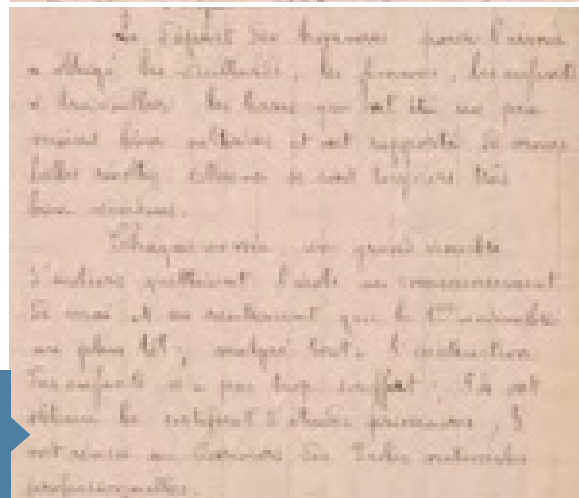 Le départ des hommes pour l'armée
a obligé les vieillards, les femmes, les enfants
à travailler les terres qui ont été un peu
moins bien cultivées et ont rapporté de moins
belles récoltes. Celles-ci se sont toujours très
bien vendues.
Chaque année un grand nombre
d'écoliers quittaient l'école au commencement
de mai et ne rentraient que le 1er novembre
au plus tôt ; malgré tout l'instruction
des enfants n'a pas trop souffert ; ont
obtenu le certificat d'études primaires,
ont réussi au Concours des Ecoles nationales
professionnelles.